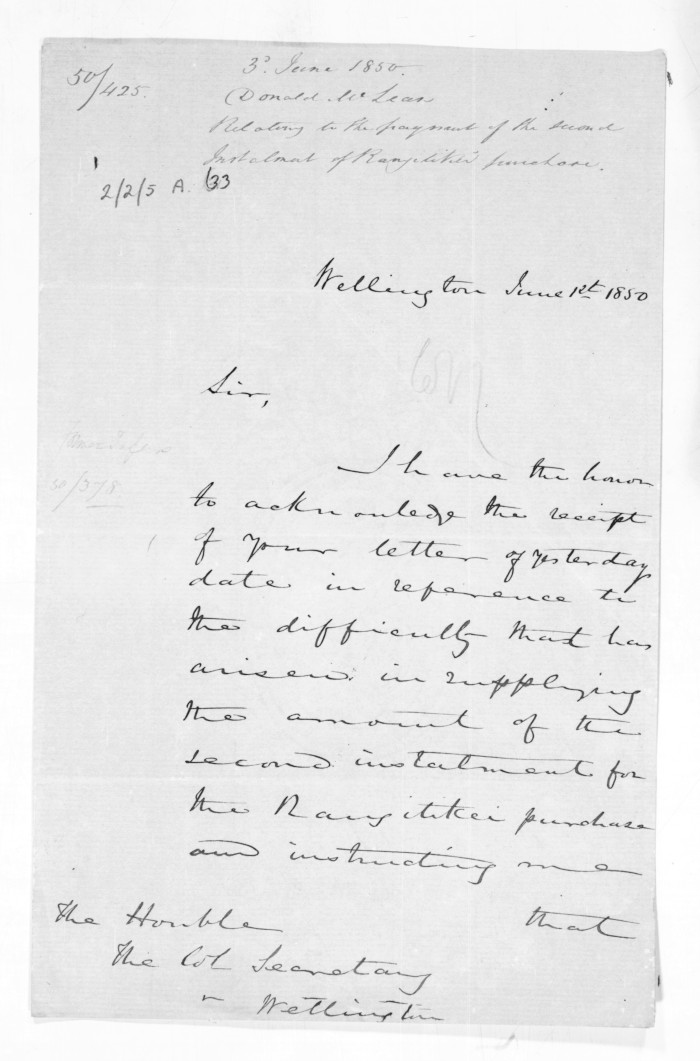 50/425.
3d. June 1850.
Donald McLean
Relating to the payment of the second
Instalment of Rangitikei purchase.
2/2/5 A. 33
Wellington June 1st 1850
Sir,
50/378
I have the honor
to acknowledge the receipt
of your letter of yesterdays
date in reference to
the difficulty that has
arisen in supplying
the amount of the
second instalment for
the Rangitikei purchase
and instructing me
that
The Honble
The Col Secretary
Wellington